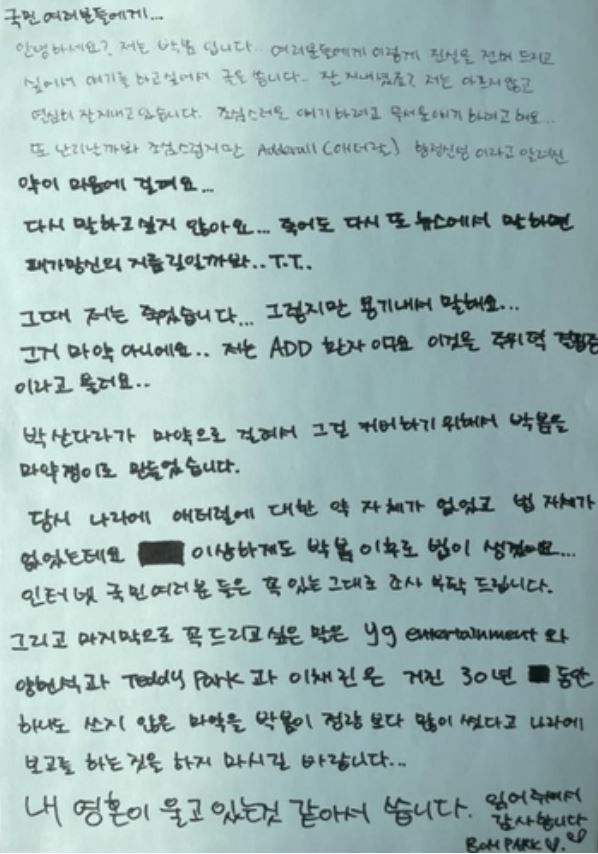 국민 여러분들에게...
안녕하세요? 저는 박봄 입니다.. 여러분들에게 이렇게 진실을 전해 드리고
싶어서 얘기를 하고싶어서 글을 씁니다.. 잘 지내셨죠? 저는 아프지않고
열심히 잘지내고 있습니다. 조심스러운 얘기 하려고 무서운얘기 하려고 해요...
또 난리날까봐 조심스럽지만 Adderall (애더럴) 향정신성 이라고 알려진
약이 마음에 걸려요...
다시 말하고싶지 않아요... 죽어도 다시 또 뉴스에서 말하면
패가망신의 지름길일까봐..T.T..
그때 저는 죽었습니다... 그렇지만 용기내서 말해요...
그거 마약 아니에요.. 저는 ADD 환자 이구요 이것을 주위력 결핍증
이라고 불러요..
박산다라가 마약으로 걸려서 그걸 커버하기 위해서 박봄을
마약쟁이로 만들었습니다.
당시 나라에 애더럴에 대한 약 자체가 없었고 법 자체가
없었는데요 이상하게도 박봄 이후로 법이 생겼어요...
인터넷 국민여러분 들은 꼭 있는그대로 조사 부탁 드립니다.
그리고 마지막으로 꼭 드리고싶은 말은 yg entertainment 와
양현석과 Teddy Park 과 이채린은 거진 30년 동안
하나도 쓰지 않은 마약을 박봄이 정량 보다 많이 썼다고 나라에
보고를 하는 것을 하지 마시길 바랍니다...
내 영혼이 울고 있는것 같아서 씁니다. 읽어주셔서
감사합니다
BOM PARK